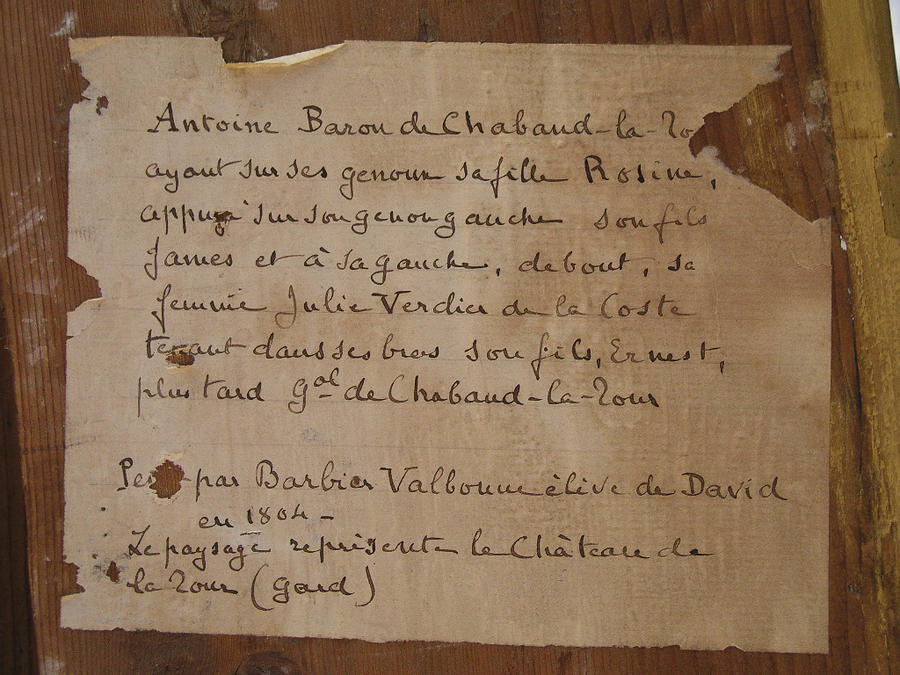 Antoine Baron de Chabaud-la-To
ayant sur ses genoux sa fille Rosine,
appuyé sur son genou gauche son fils
James et à sa gauche, debout, sa
femme Julie Verdier de la Coste
tenant dans ses bras son fils, Ernest,
plus tard Gal de Chabaud-la-Tour
Pe par Barbier Valbonne élève de David
en 1804 -
Le paysage représente le Château de
la Tour (Gard)